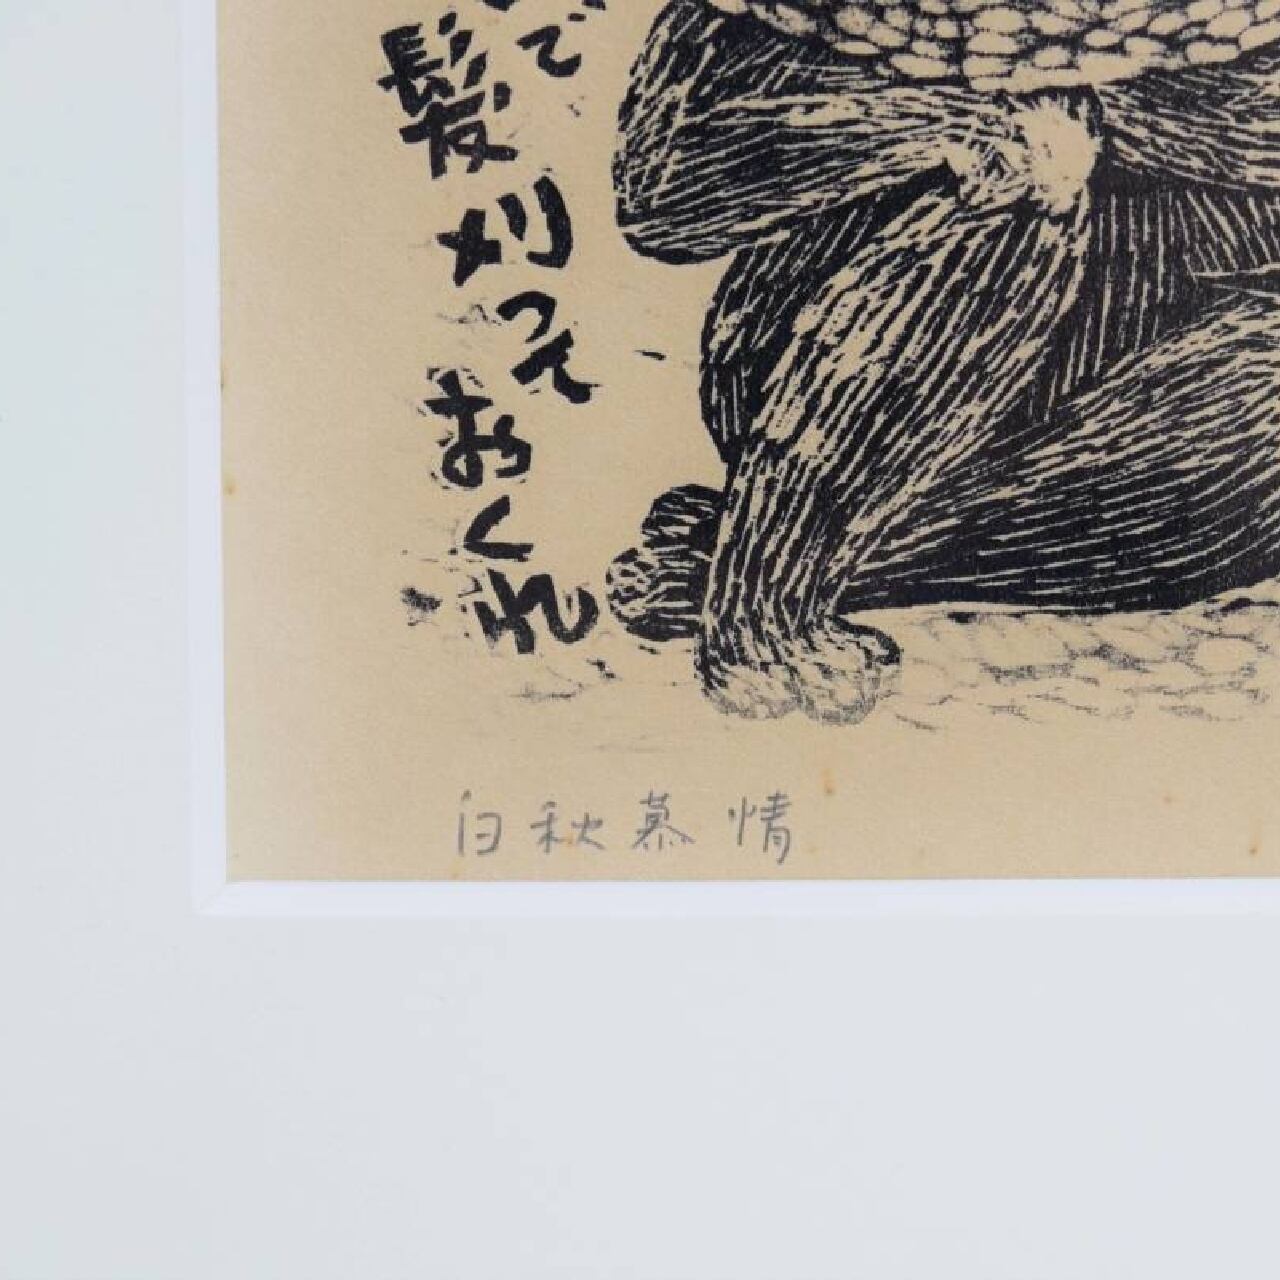 で髪刈っておくれ
白秋慕情